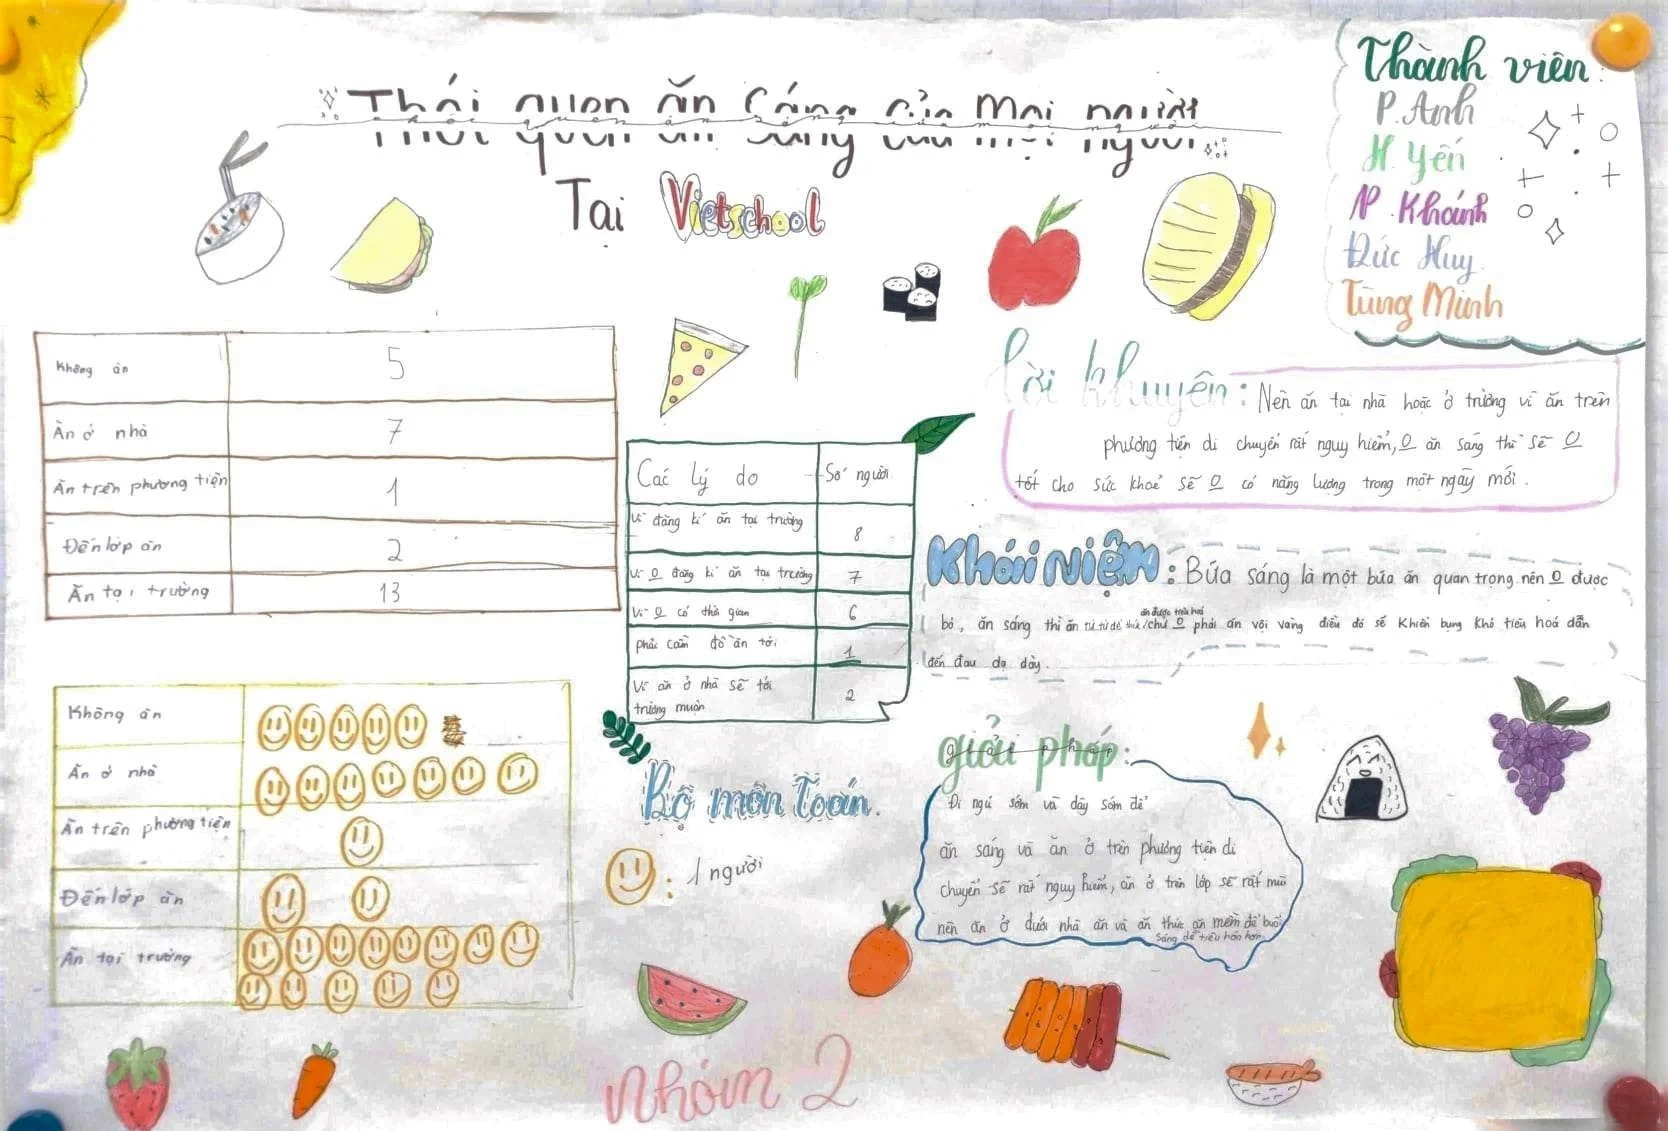 Thói quen ăn sáng của mọi người
Tại Vietschool
Thành viên:
P. Anh
H. Yến
N P. Khánh
Đức Huy
Tùng Minh
Không ăn 5
Ăn ở nhà 7
Ăn trên phương tiện 1
Đến lớp ăn 2
Ăn tại trường 13
Các lý do Số người
Vì đăng kí ăn tại trường 8
Vì O đăng kí ăn tại trường 7
Vì O có thời gian 6
phải cầm đồ ăn tới 1
Vì ăn ở nhà sẽ tới
trường muộn 2
Lời khuyên: Nên ăn tại nhà hoặc ở trường vì ăn trên
phương tiện di chuyển rất nguy hiểm, O ăn sáng thì sẽ O
tốt cho sức khoẻ sẽ O có năng lượng trong một ngày mới.
Khái Niệm: Bữa sáng là một bữa ăn quan trọng nên O được
bỏ, ăn sáng thì ăn từ từ để thức ăn được tiêu hoá chứ O phải ăn vội vàng điều đó sẽ khiến bụng khó tiêu hoá dẫn
đến đau dạ dày.
Không ăn
Ăn ở nhà
Ăn trên phương tiện
Đến lớp ăn
Ăn tại trường
Bộ môn Toán.
: 1 người
giải pháp:
Đi ngủ sớm và dậy sớm để
ăn sáng và ăn ở trên phương tiện di
chuyển sẽ rất nguy hiểm, ăn ở trên lớp sẽ rất mùi
nên ăn ở dưới nhà ăn và ăn thức ăn mềm để buổi
sáng dễ tiêu hóa hơn
Nhóm 2